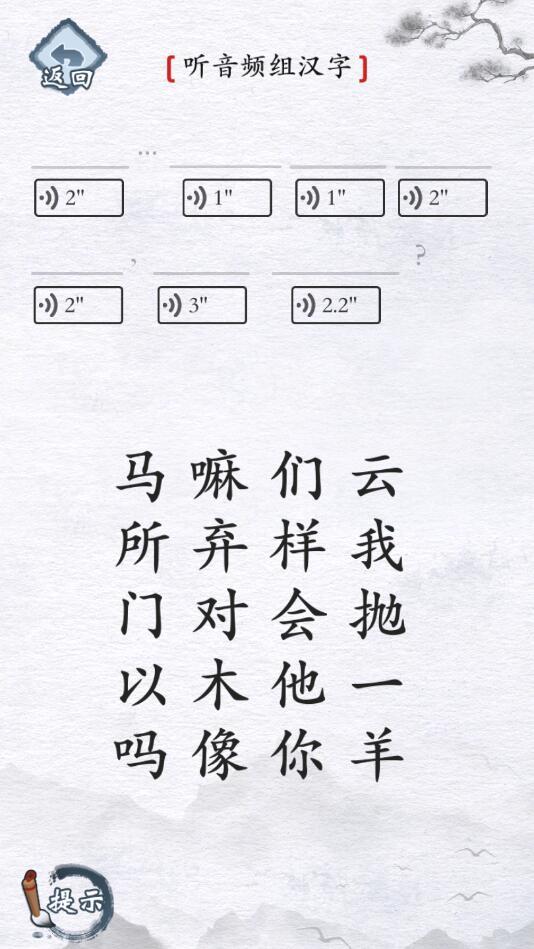 返回
[听音频组汉字]
...
2" 1" 1" 2"
, ?
2" 3" 2.2"
马 嘛 们 云
所 弃 样 我
门 对 会 抛
以 木 他 一
吗 像 你 羊
提示